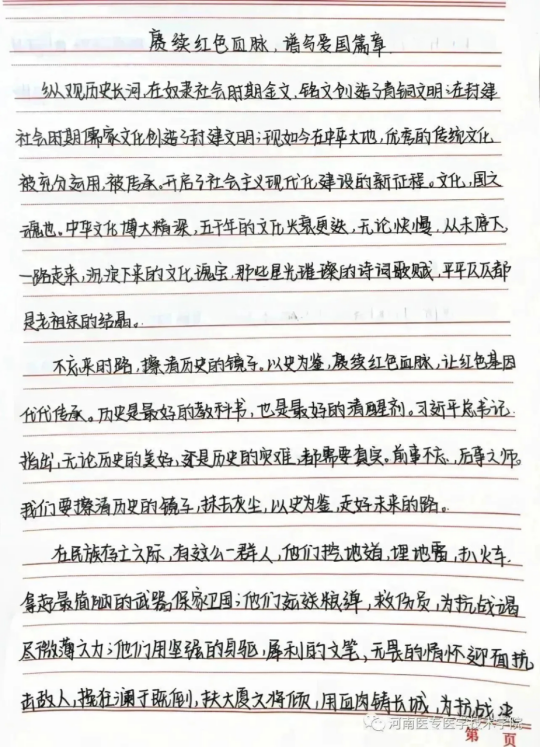 赓续红色血脉，谱写爱国篇章
纵观历史长河，在奴隶社会时期金文、铭文创造了青铜文明；在封建
社会时期儒家文化创造了封建文明；现如今在中华大地，优秀的传统文化
被充分运用，被传承。开启了社会主义现代化建设的新征程。文化，国之
魂也。中华文化博大精深，五千年的文化兴衰更迭，无论快慢，从未停下
一路走来，沉淀下来的文化瑰宝，那些星光璀璨的诗词歌赋，平平仄仄都
是老祖宗的结晶。
不忘来时路，擦清历史的镜子。以史为鉴，赓续红色血脉，让红色基因
代代传承。历史是最好的教科书，也是最好的清醒剂。习近平总书记
指出，无论历史的美好，还是历史的灾难，都需要真实。前事不忘，后事之师。
我们要擦清历史的镜子，抹去灰尘，以史为鉴，走好未来的路。
在民族存亡之际，有这么一群人，他们挖地道，埋地雷，扒火车
拿起最简陋的武器保家卫国；他们运送粮弹，救伤员，为抗战竭
尽微薄之力；他们用坚强的身躯，犀利的文笔，无畏的情怀迎面抗
击敌人，挽狂澜于既倒，扶大厦之将倾，用血肉铸长城，为抗战决
河南医专医学技术学院
第 页